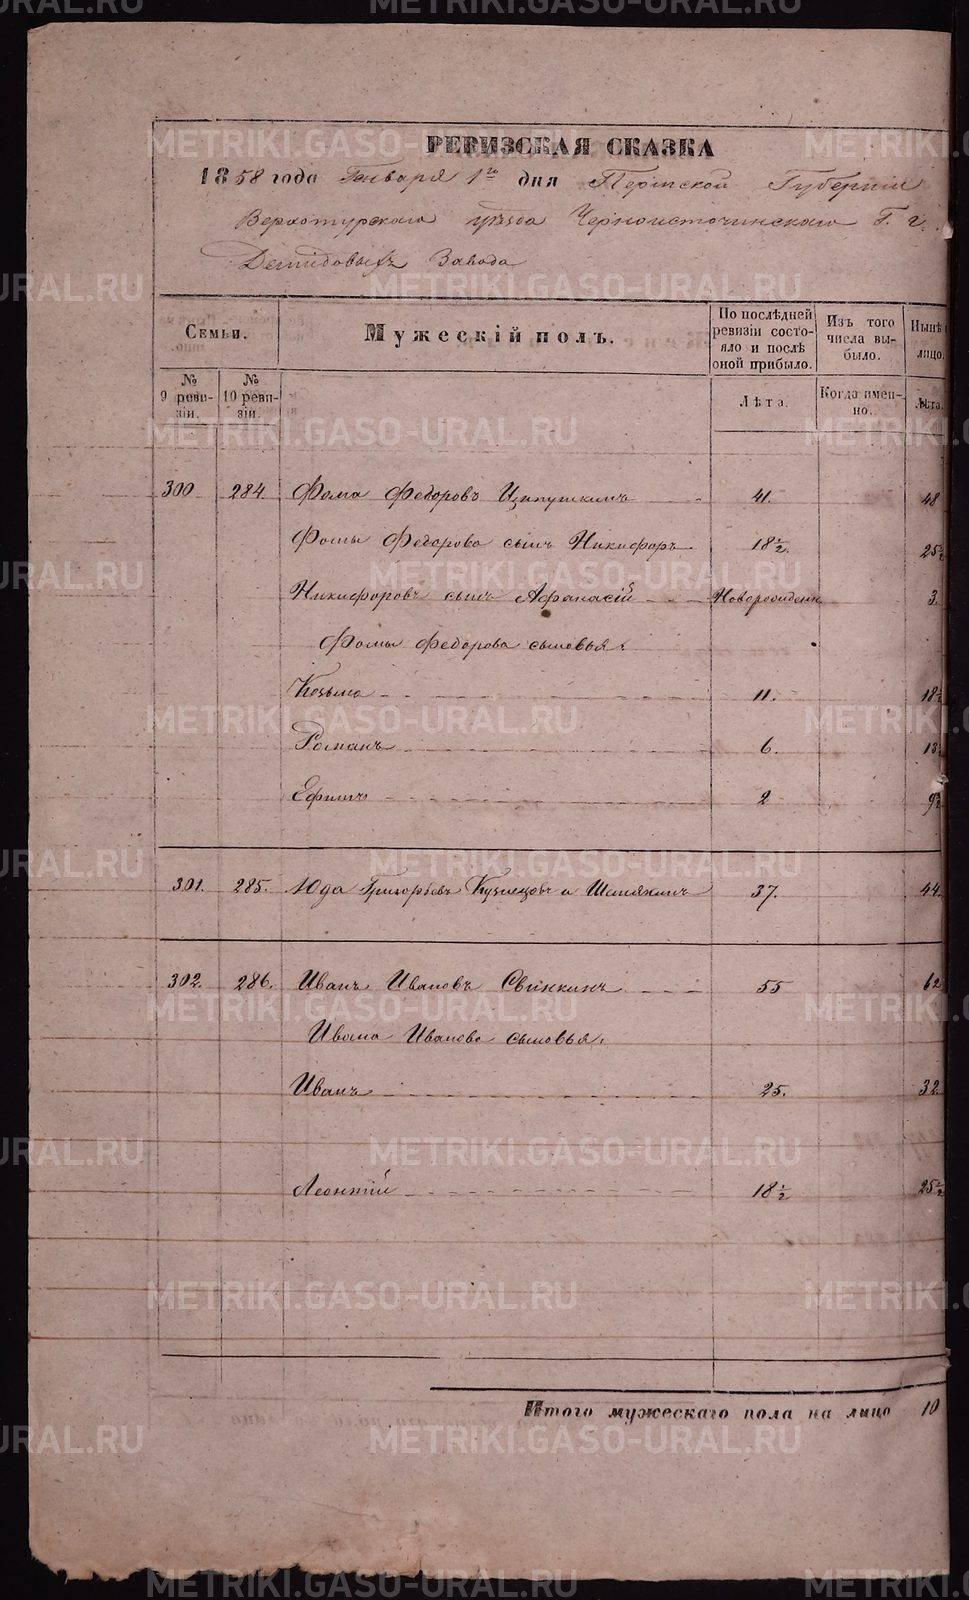 РЕВИЗСКАЯ СКАЗКА
1858 года Января 1го дня Пермской Губернии
Верхотурскаго уѣзда Черноисточинскаго Г. г.
Демидовыхъ Завода
Семьи.
Мужескій полъ.
По послѣдней ревизіи состояло и послѣ оной прибыло.
Изъ того числа выбыло.
Нынѣ лицо.
№ 9 ревизіи.
№ 10 ревизіи.
Лѣта.
Когда именно.
Лѣта.
300 284 Фома Федоровъ 41. 48.
Фомы Федорова сынъ Никифоръ 18½. 25½
Никифоровъ сынъ Афанасій Новорожден. 3.
Фомы Федорова сыновья:
Козьма 11. 18½
Романъ 6. 13½
Ефимъ 2 9½
301. 285. Юда Григорьевъ Кузнецовъ а Шемякинъ 37. 44.
302. 286. Иванъ Ивановъ Свинкинъ 55 62
Ивана Иванова сыновья:
Иванъ 25. 32.
Леонтій 18½ 25½
Итого мужескаго пола на лицо 10
METRIKI.GASO-URAL.RU